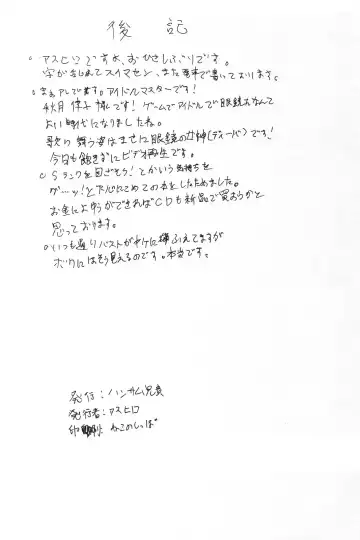 後記
○ アスヒロですよ、おひさしぶりです。
字がきたなくてスイマセン、また電車で書いております。
○ まぁアレですよ。アイドルマスターです!
秋月 律子 様です! ゲームでアイドルで眼鏡おなんて
よい時代になりましたね。
歌い 舞う姿はまさに眼鏡の女神(ディーバ)です!
今日も飽きずにビデオ再生です。
○ Sランクを目ざそう! とかいう気持ちを
グーッ!と下心にこめこの本をしたためました。
お金によゆうができればCDも新品で買おうかと
思っております。
○ いつも通りバストがヤケに増ふえてますが
ボクにはそう見えるのです。本当です。
発行:ハンサム兄貴
発行者:アスヒロ
印刷 ねこのしっぽ